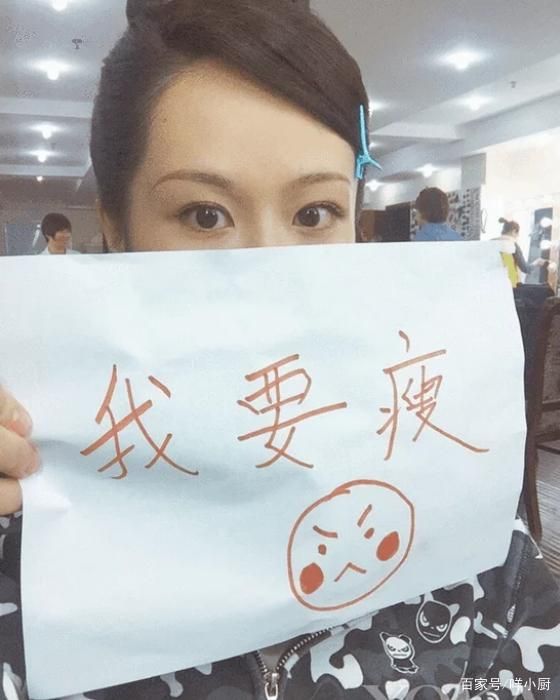 我要瘦
百家号/咩小厨